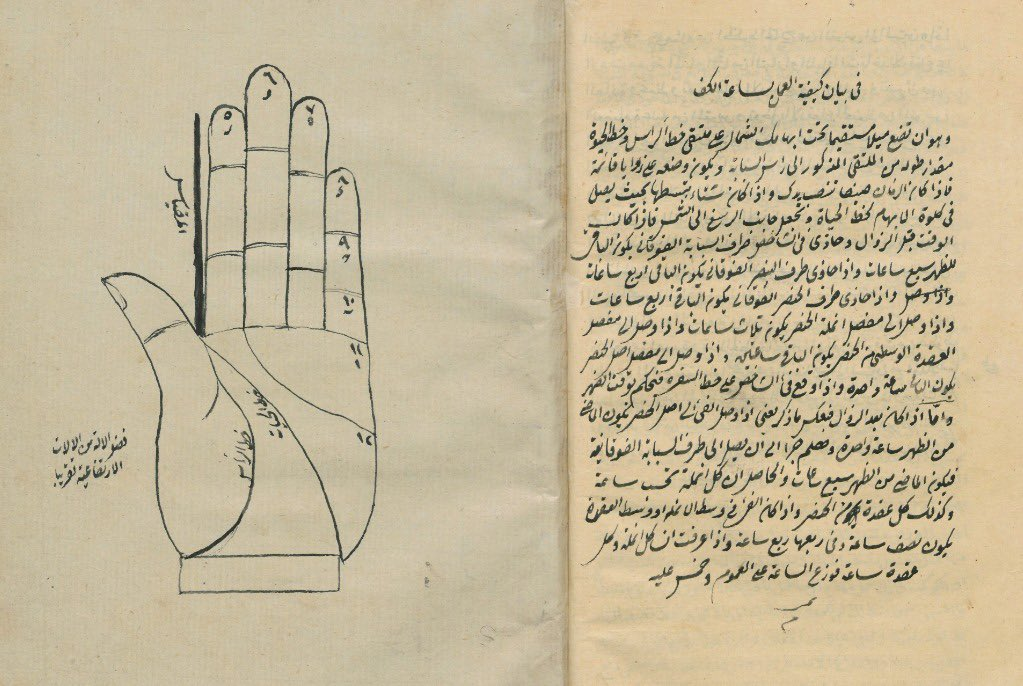 في بيان كيفية العمل بساعة الكف
وهو ان تضع ميلا مستقيما تحت ابهامك الشمال على ملتقى خط الراس وخط الحيوة
مقدار طوله من الملتقى المذكور الى راس السبابة ويكون وضعه على زوايا قائمة
فاذا كان الزمان صيفا تنصب يدك واذا كان شتاء تبسطها بحيث يصل
فئ كلوة الابهام لخط الحياة وتجعل جانب الرسغ الى الشمس فاذا كان
الوقت قبل الزوال وحاذى فئ الشاخص طرف السبابة الفوقاني يكون الباقي
للظهر سبع ساعات واذا حاذى طرف البنصر الفوقاني يكون الباقي اربع ساعات
واذا وصل واذا حاذى طرف الخنصر الفوقاني يكون الباقي اربع ساعات
واذا وصل الى مفصل انملة الخنصر يكون ثلاث ساعات واذا وصل الى مفصل
العقدة الوسطى من الخنصر يكون الباقي ساعتين واذا وصل الى مفصل اصل الخنصر
يكون الباقي ساعة واحدة واذا وقع فئ الشاخص على خط السفرة فتحكم بوقت الظهر
واما اذا كان بعد الزوال فبعكس ما ذكر يعني اذا وصل الفئ الى اصل الخنصر يكون الماضي
من الظهر ساعة واحدة وهلم جرا الى ان يصل الى طرف السبابة الفوقانية
فيكون الماضي من الظهر سبع ساعات والحاصل ان كل انملة تحسب ساعة
وكذلك كل عقدة من الخنصر واذا كان الفئ في وسط الانملة او وسط العقدة
يكون نصف ساعة وفي ربعها ربع ساعة واذا عرفت ان كل انملة وكل
عقدة ساعة فوزع الساعة على العموم وقس عليه
تم
م
مقياس
خط الحيات
خط الراس
فهو الالة من الالات
الارتفاعية تقريبا